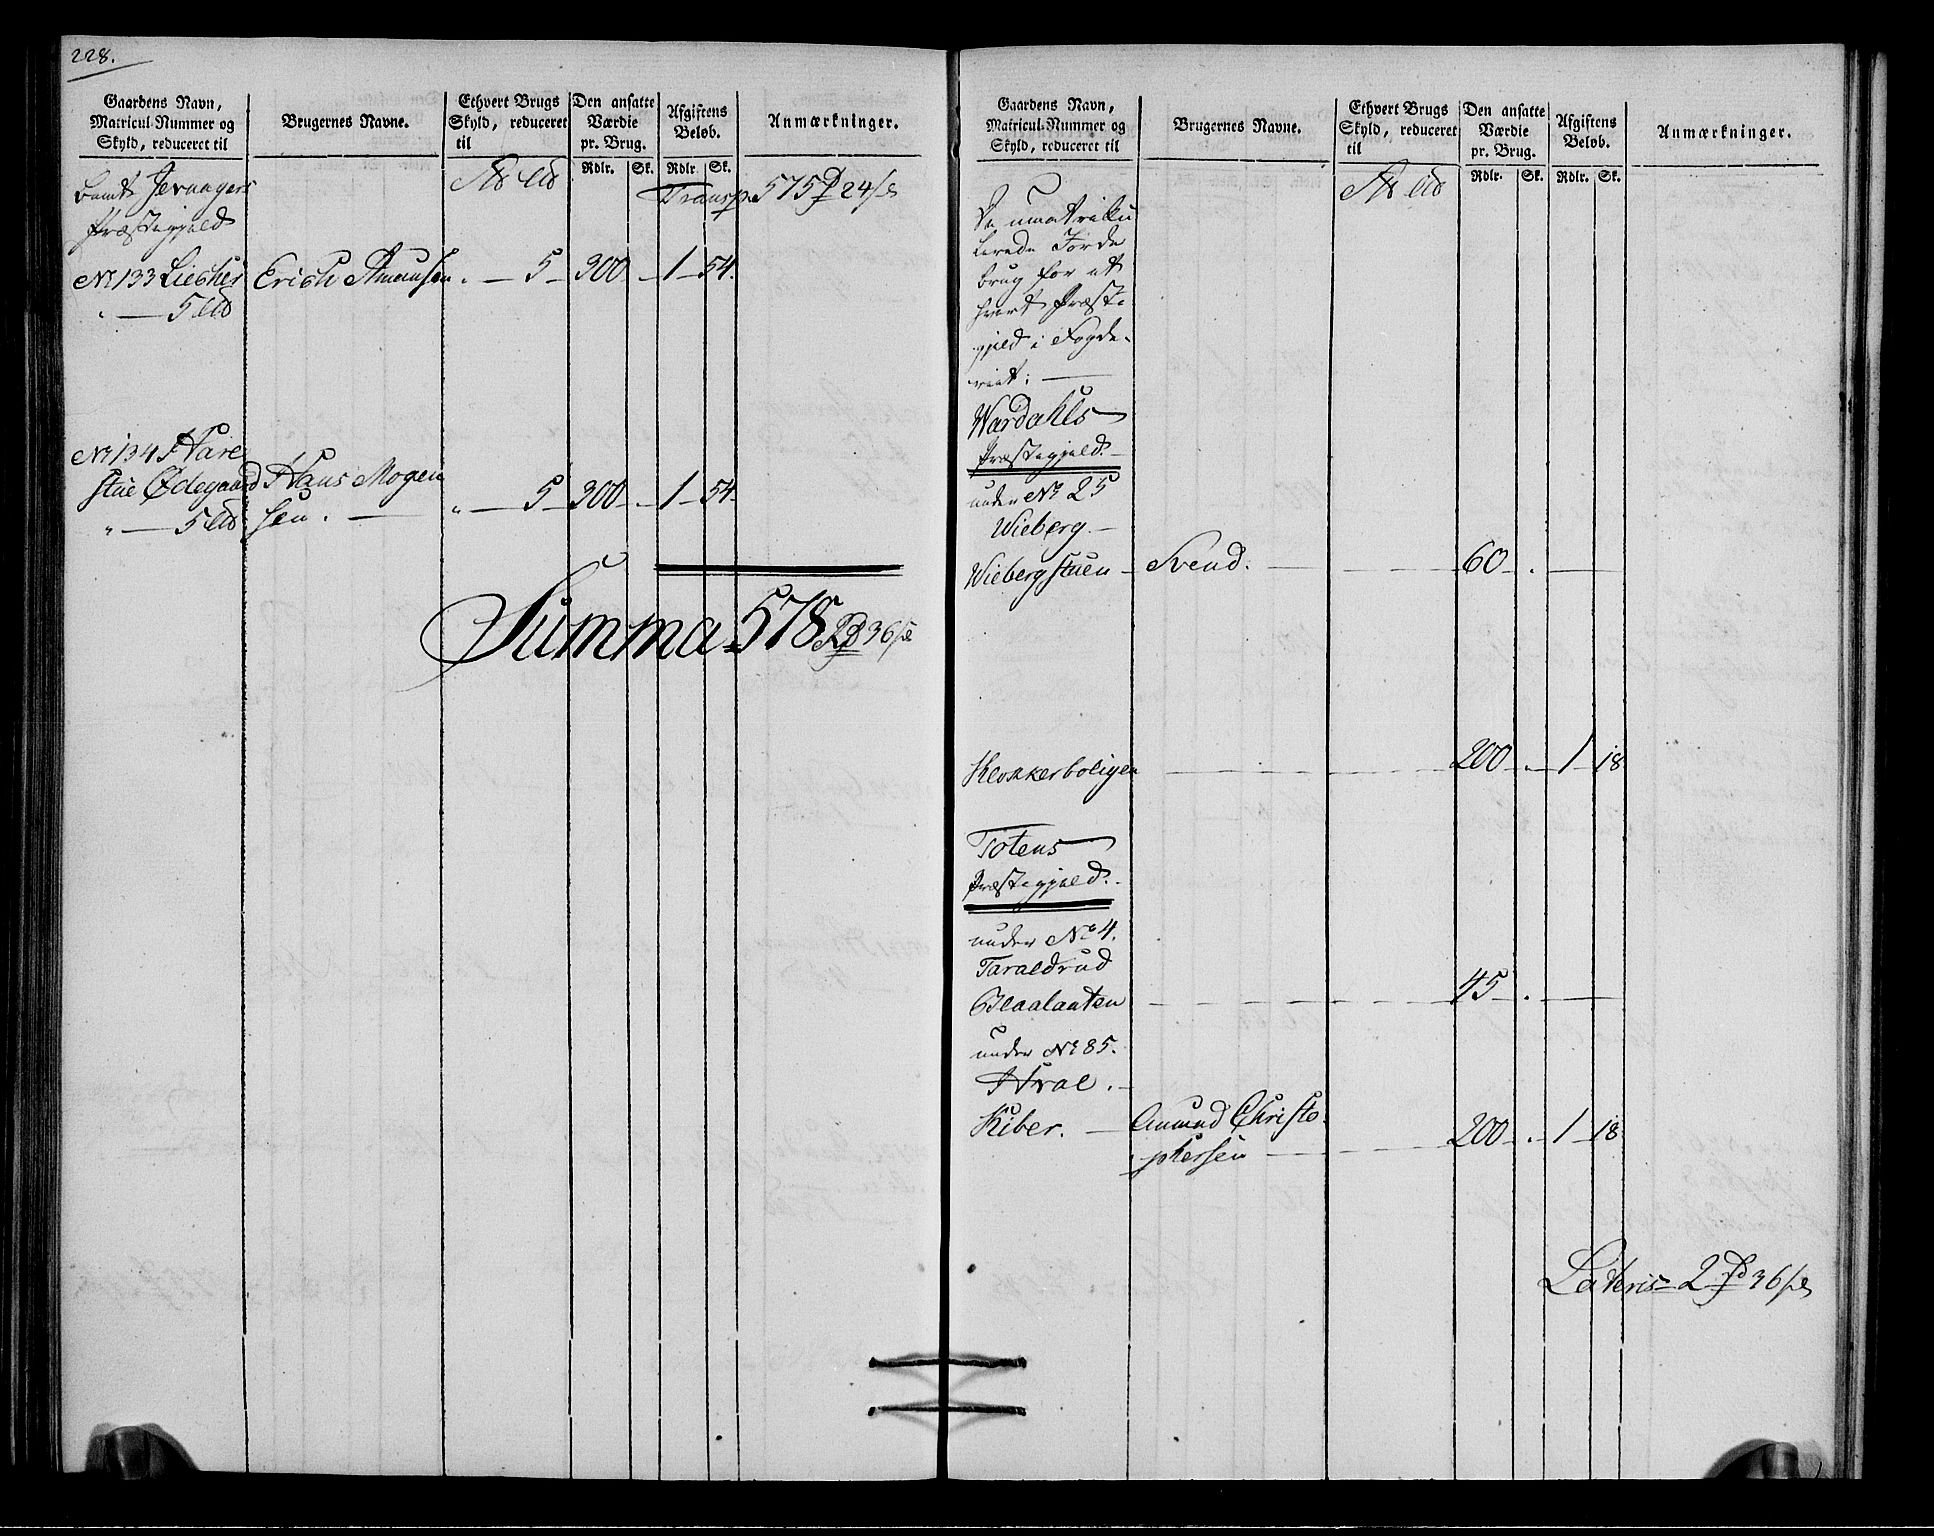 228.
Gaardens Navn,
Matricul-Nummer og
Skyld, reduceret til
Brugernes Navne.
Ethvert Brugs
Skyld, reduceret
til
Den ansatte
Værdie
pr. Brug.
Afgiftens
Beløb.
Anmærkninger.
Rdlr. Sk. Rdlr. Sk.
Jevnagers
Præstegjeld
Transp. 575 24
No 133 Liecher Erich Amunsen . — 5 — 300 — 1 — 54.
" — 5
No 134 Hare
stue Ødegaard Hans Mogen " — 5 — 300 — 1 — 54
" — 5 sen.
Summa 578 36
Gaardens Navn,
Matricul-Nummer og
Skyld, reduceret til
Brugernes Navne.
Ethvert Brugs
Skyld, reduceret
til
Den ansatte
Værdie
pr. Brug.
Afgiftens
Beløb.
Anmærkninger.
Rdlr. Sk. Rdlr. Sk.
De umatriku
lerede Jorde
brug for et
hvert Præste
gjeld i Fogde-
riet: —
Wardahls
Præstegjeld. —
under No 25
Wieberg. —
Wieberg stuen — Svend. — 60 . —
Klokkerboligen — 200 — . — 1 — 18
Totens
Præstegjeld.
under No 4.
Taraldrud
Blaalanten — 45 — . —
under No 85.
Hval. —
Kiber. — Amund Christo- 200 — . — 1 — 18
phersen —
Lateris 2 36